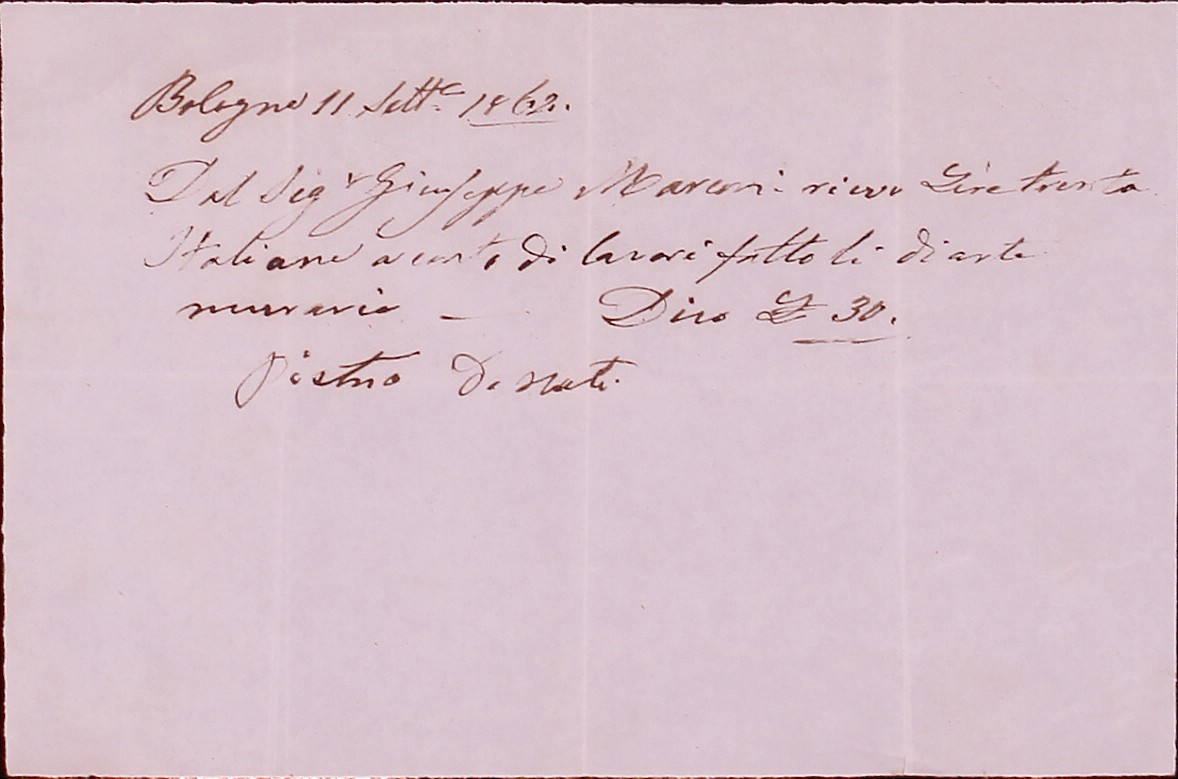 Bologna 11 Sett.e 1862.
Dal Sigr Giuseppe Marconi ricevo Lire trenta
Italiane a conto di lavori fattoli di arte
murraria — Dico £ 30.
Pietro Donati